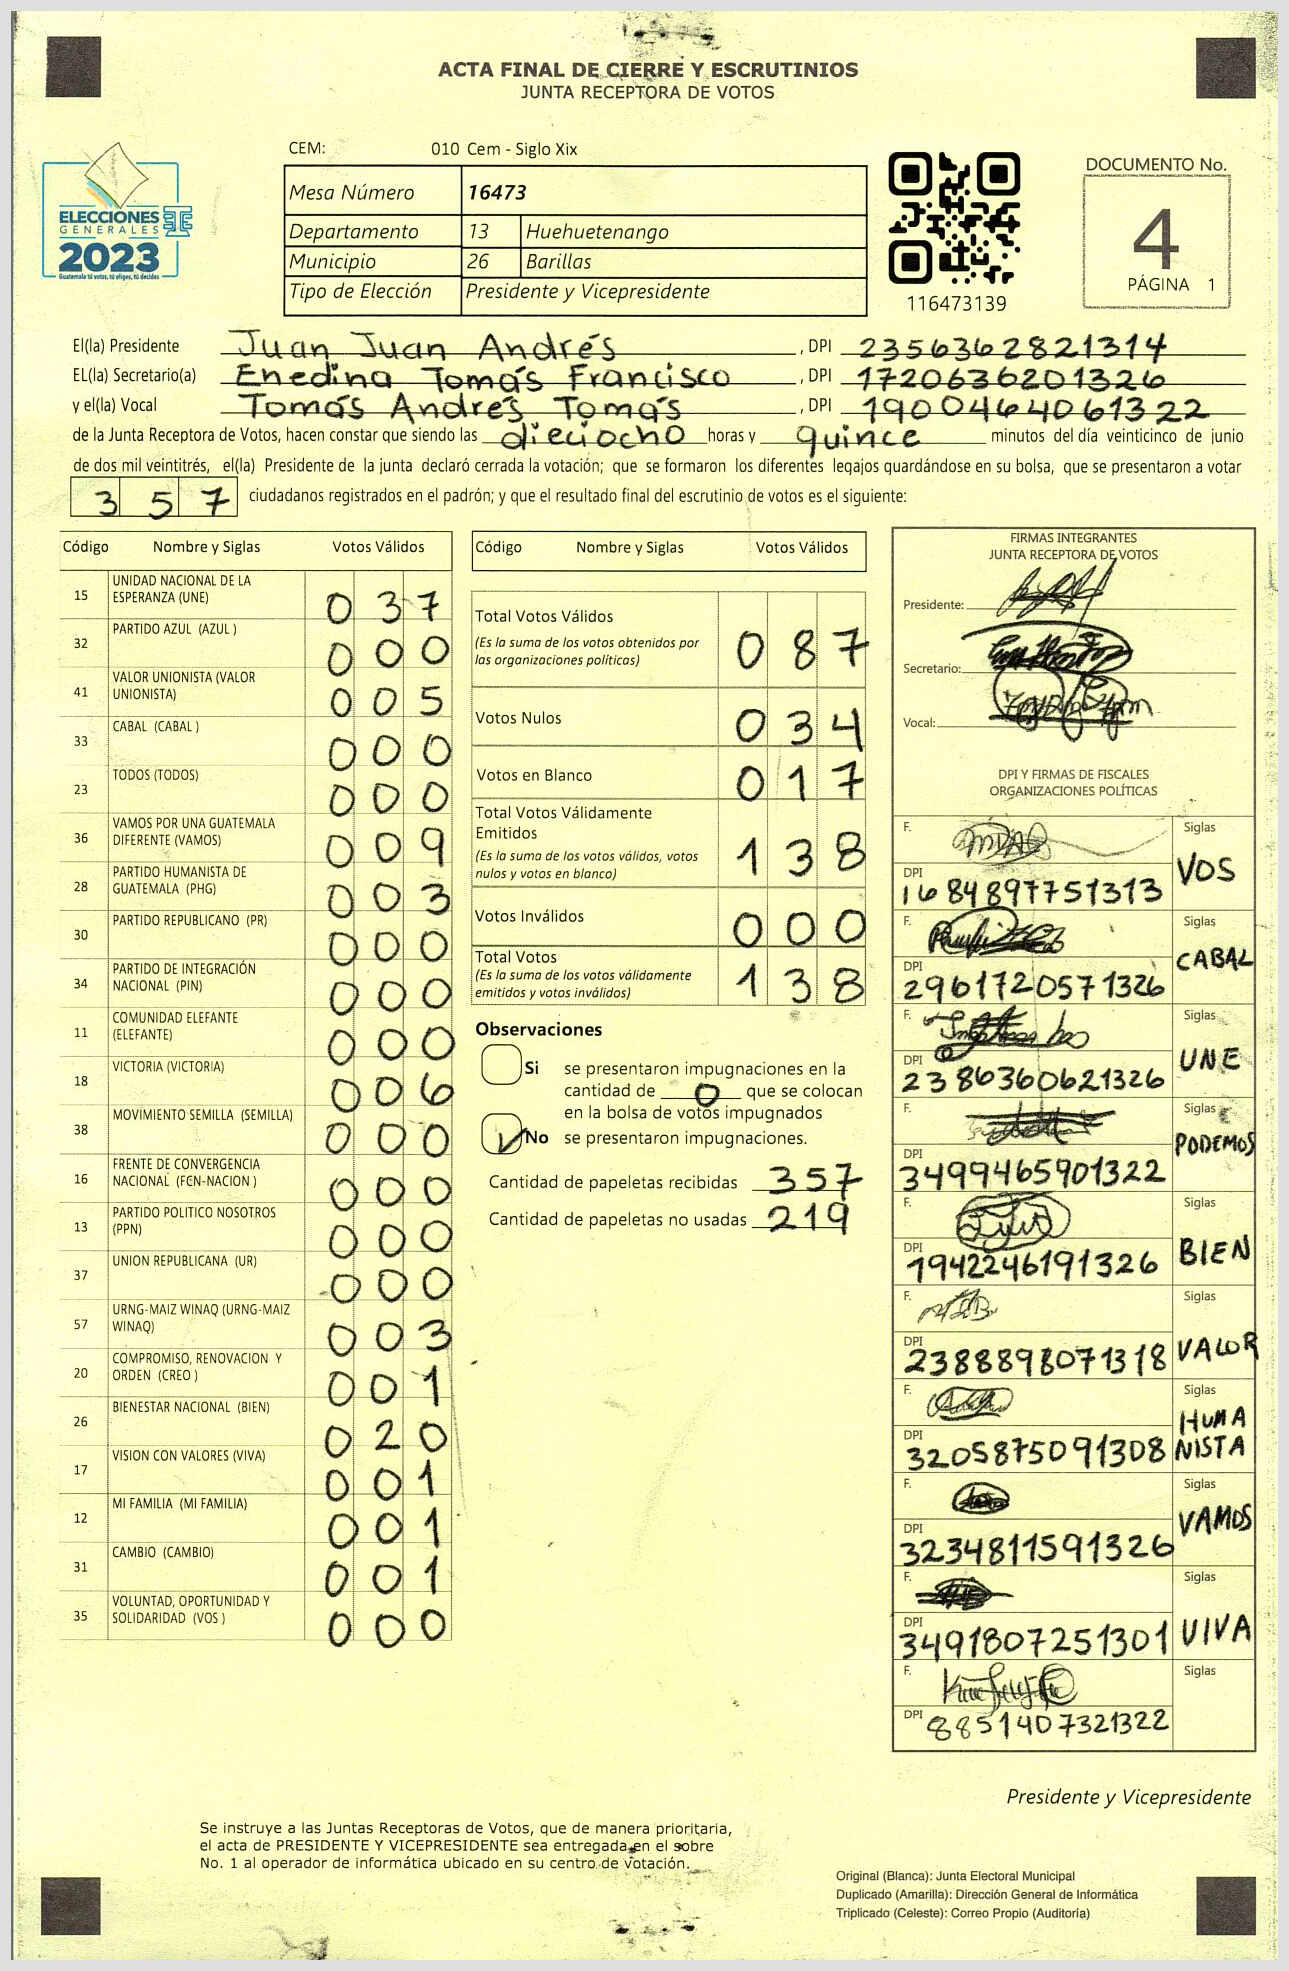 ACTA FINAL DE CIERRE Y ESCRUTINIOS
JUNTA RECEPTORA DE VOTOS
CEM: 010 Cem - Siglo Xix
ELECCIONES
GENERALES
2023
Guatemala tú votas, tú eliges, tú decides
Mesa Número 16473
Departamento 13 Huehuetenango
Municipio 26 Barillas
Tipo de Elección Presidente y Vicepresidente
116473139
DOCUMENTO No.
4
PÁGINA 1
El(la) Presidente Juan Juan Andrés , DPI 2356362821314
EL(la) Secretario(a) Enedina Tomás Francisco , DPI 1720636201326
y el(la) Vocal Tomás Andrés Tomás , DPI 1900464061322
de la Junta Receptora de Votos, hacen constar que siendo las dieciocho horas y quince minutos del día veinticinco de junio
de dos mil veintitrés, el(la) Presidente de la junta declaró cerrada la votación; que se formaron los diferentes legajos guardándose en su bolsa, que se presentaron a votar
357 ciudadanos registrados en el padrón; y que el resultado final del escrutinio de votos es el siguiente:
Código Nombre y Siglas Votos Válidos
15 UNIDAD NACIONAL DE LA ESPERANZA (UNE) 037
32 PARTIDO AZUL (AZUL ) 000
41 VALOR UNIONISTA (VALOR UNIONISTA) 005
33 CABAL (CABAL ) 000
23 TODOS (TODOS) 000
36 VAMOS POR UNA GUATEMALA DIFERENTE (VAMOS) 009
28 PARTIDO HUMANISTA DE GUATEMALA (PHG) 003
30 PARTIDO REPUBLICANO (PR) 000
34 PARTIDO DE INTEGRACIÓN NACIONAL (PIN) 000
11 COMUNIDAD ELEFANTE (ELEFANTE) 000
18 VICTORIA (VICTORIA) 006
38 MOVIMIENTO SEMILLA (SEMILLA) 000
16 FRENTE DE CONVERGENCIA NACIONAL (FCN-NACION ) 000
13 PARTIDO POLITICO NOSOTROS (PPN) 000
37 UNION REPUBLICANA (UR) 000
57 URNG-MAIZ WINAQ (URNG-MAIZ WINAQ) 003
20 COMPROMISO, RENOVACION Y ORDEN (CREO ) 001
26 BIENESTAR NACIONAL (BIEN) 020
17 VISION CON VALORES (VIVA) 001
12 MI FAMILIA (MI FAMILIA) 001
31 CAMBIO (CAMBIO) 001
35 VOLUNTAD, OPORTUNIDAD Y SOLIDARIDAD (VOS ) 000
Código Nombre y Siglas Votos Válidos
Total Votos Válidos 087
(Es la suma de los votos obtenidos por
las organizaciones políticas)
Votos Nulos 034
Votos en Blanco 017
Total Votos Válidamente
Emitidos 138
(Es la suma de los votos válidos, votos
nulos y votos en blanco)
Votos Inválidos 000
Total Votos 138
(Es la suma de los votos válidamente
emitidos y votos inválidos)
Observaciones
Si se presentaron impugnaciones en la
cantidad de 0 que se colocan
en la bolsa de votos impugnados
No se presentaron impugnaciones.
Cantidad de papeletas recibidas 357
Cantidad de papeletas no usadas 219
FIRMAS INTEGRANTES
JUNTA RECEPTORA DE VOTOS
Presidente:
Secretario:
Vocal:
DPI Y FIRMAS DE FISCALES
ORGANIZACIONES POLÍTICAS
F. Siglas
DPI 1684897751313 VOS
F. Siglas
DPI 2961720571326 CABAL
F. Siglas
DPI 2386360621326 UNE
F. Siglas
DPI 3499465901322 PODEMOS
F. Siglas
DPI 1942246191326 BIEN
F. Siglas
DPI 2388898071318 VALOR
F. Siglas
DPI 3205875091308 HUMANISTA
F. Siglas
DPI 3234811591326 VAMOS
F. Siglas
DPI 3491807251301 VIVA
F. Siglas
DPI 8851407321322
Presidente y Vicepresidente
Se instruye a las Juntas Receptoras de Votos, que de manera prioritaria,
el acta de PRESIDENTE Y VICEPRESIDENTE sea entregada en el sobre
No. 1 al operador de informática ubicado en su centro de votación.
Original (Blanca): Junta Electoral Municipal
Duplicado (Amarilla): Dirección General de Informática
Triplicado (Celeste): Correo Propio (Auditoría)